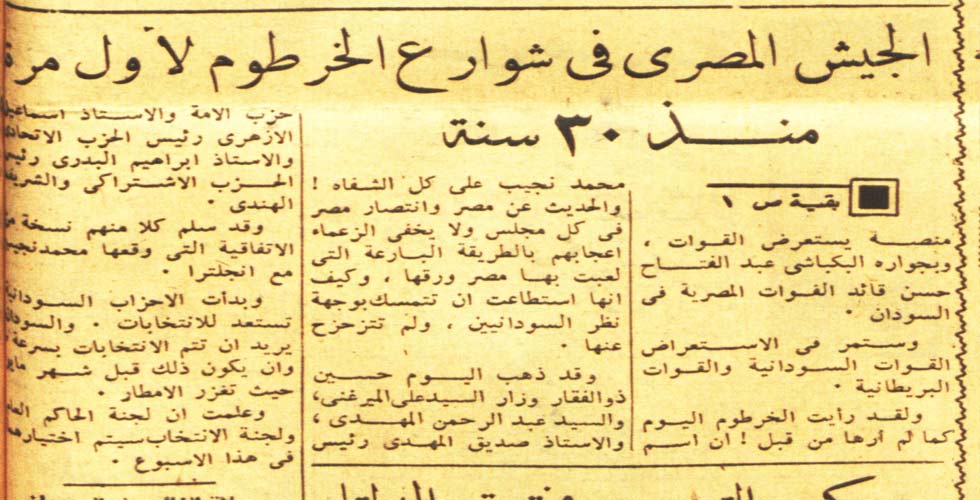 الجيش المصرى فى شوارع الخرطوم لأول مرة
منــذ ٣٠ سنة
بقية ص ١
منصــة يستعرض القوات ،
وبجواره البكباشى عبد الفتــاح
حسن قائد القوات المصرية فى
السودان ٠
وستمر فى الاستعراض
القوات السودانية والقوات
البريطانية ٠
ولقد رأيت الخرطوم اليوم
كما لم أرها من قبل ! ان اسم
محمد نجيب على كل الشفاه !
والحديث عن مصر وانتصار مصر
فى كل مجلس ولا يخفى الزعماء
اعجابهم بالطريقة البارعة التى
لعبت بها مصر ورقها ، وكيف
انها استطاعت ان تتمسك بوجهة
نظر السودانيين ، ولم تتزحزح
عنها ٠
وقد ذهب اليـوم حسين
ذوالفقار وزار السيدعلى الميرغنى،
والسيد عبد الرحمن المهـدى ،
والاستاذ صديق المهدى رئيس
حزب الامة والاسـتاذ اسماعيل
الازهرى رئيس الحزب الاتحادى
والاستاذ ابراهيم البدرى رئيس
الحـزب الاشـتراكى والشريف
الهندى ٠
وقد سلم كلا منهم نسخة من
الاتفاقية التى وقعها محمدنجيب
مع انجلترا ٠
وبدأت الاحزاب السـودانية
تستعد للانتخابات ٠ والسودان
يريد ان تتم الانتخابات بسرعة
وان يكون ذلك قبل شهر مايو
حيث تغزر الامطار ٠
وعلمت ان لجنة الحاكم العام
ولجنة الانتخاب سيتم اختيارهما
فى هذا الاسبوع ٠